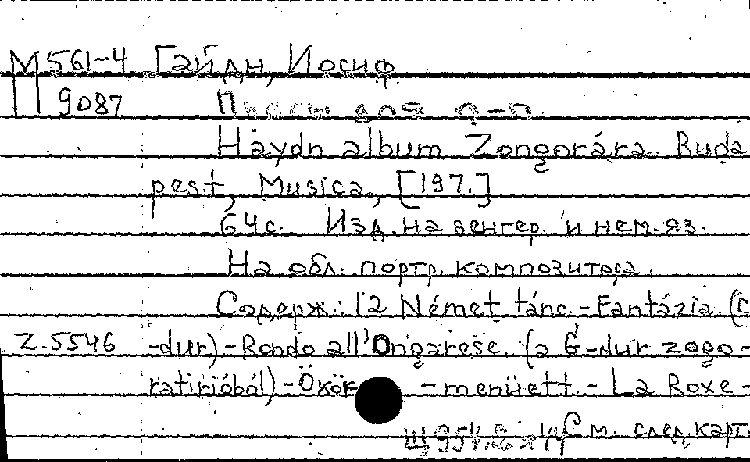 М 561-4 Гайдн, Иосиф
9087 Пьесы для ф-п.
Haydn album Zongorára. Buda
pest, Musica, [197.]
64 с. Изд. на венгер. и нем. яз.
На обл. портр. композитора.
Содерж.: 12 Német tánc. - Fantázia (C
Z.5546 -dur) - Rondo all'Ongarese. (a G-dur zogo-
ratirióból) - Ökör - menüett. - La Roxe-
См. след. карт.